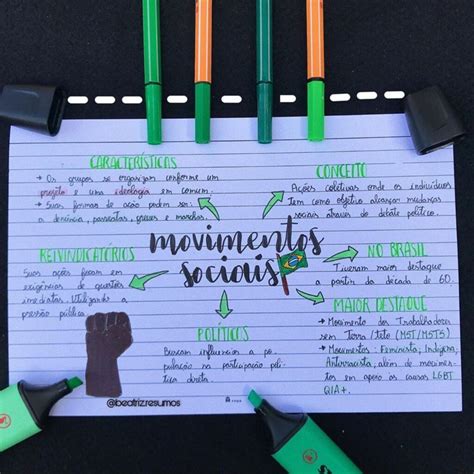 CARACTERÍSTICAS
→ Os grupos se organizam conforme um
projeto e uma ideologia em comum.
→ Suas formas de ação podem ser:
a denúncia, passeatas, greves e marchas.
CONCEITO
Ações coletivas onde os indivíduos
tem como objetivo alcançar mudanças
sociais através do debate político.
movimentos
sociais
REIVINDICATÓRIOS
Suas ações focam em
exigências de questões
imediatas. Utilizando a
pressão pública.
NO BRASIL
Tiveram maior destaque
a partir da década de 60.
MAIOR DESTAQUE
→ Movimento dos Trabalhadores
sem Terra/teto (MST/MSTS)
→ Movimentos: Feminista; Indígena;
Antirracista; além de movimen-
tos em apoio às causas LGBT
QIA+.
POLÍTICOS
Buscam influenciar a po
pulação na participação polí
tica direta.
@beatriz.resumos